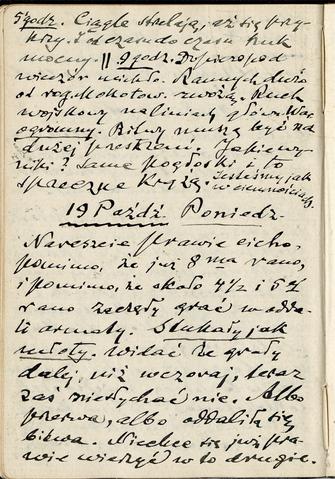 5 godz. Ciągle strzelają, aż się przy-
krzy. I od czasu do czasu huk
mocny. || 9 godz. Dopiero pod
wieczór ucichło. Rannych dużo
od rog. Mokotow. zwożą. Ruch
wojskowy na liniach głów. War.
ogromny. Bitwy muszą być na
dużej przestrzeni. Jakie wy-
niki? Same pogłoski i to
sprzeczne krążą. Jesteśmy jak
w ciemnościach.
19 Paźdź. Poniedz.
Nareszcie prawie cicho,
pomimo, że już 8ma rano,
i pomimo, że około 4 1/2 i 5ej
rano zaczęły grać w odda-
li armaty. Stukały jak
młoty. Widać że grały
dalej, niż wczoraj, teraz
zaś nie słychać nic. Albo
przerwa, albo oddaliła się
bitwa. Nie chce się już pra-
wie wierzyć w to drugie.